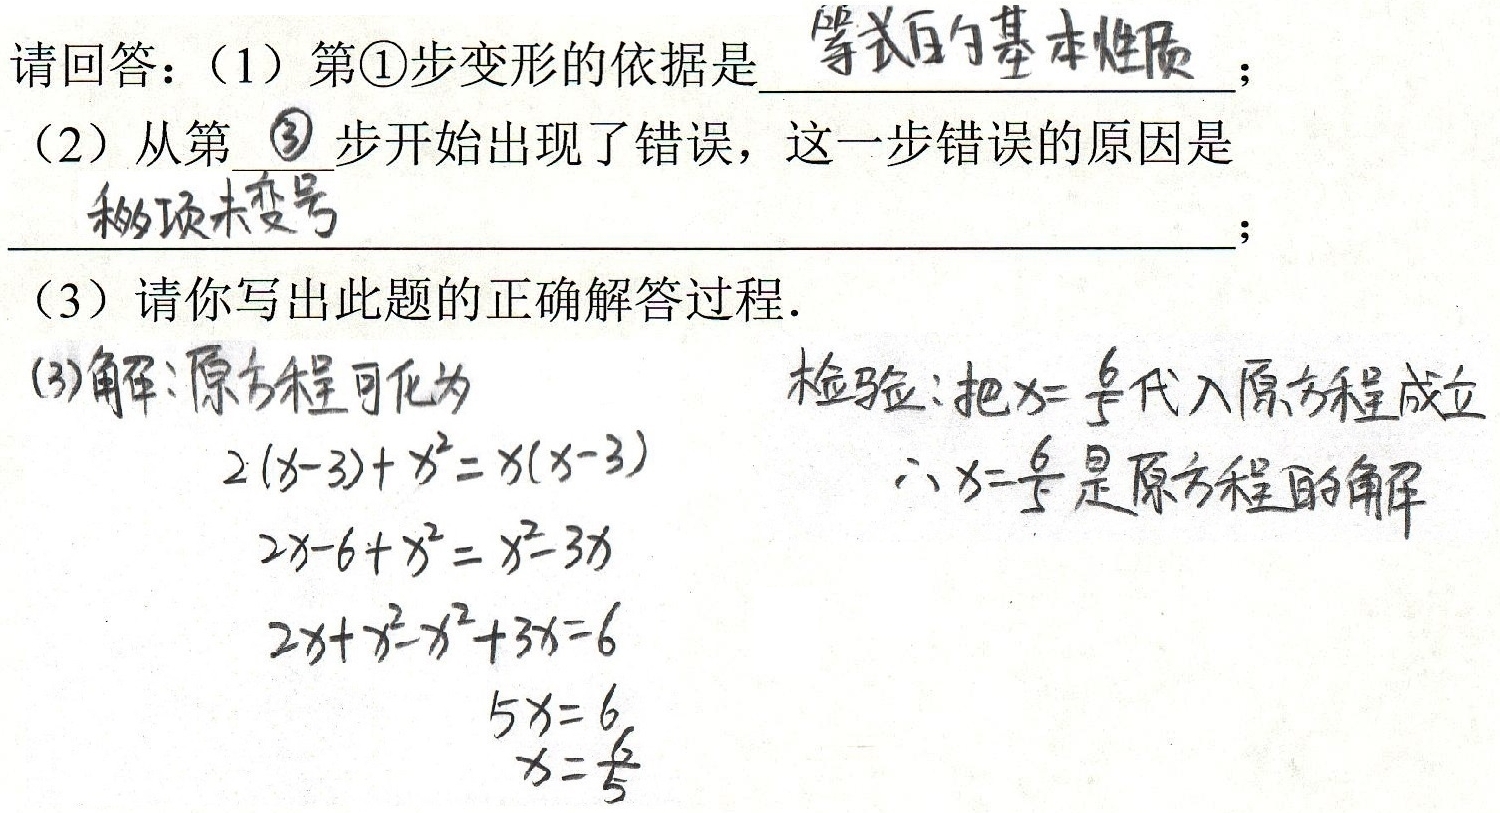 请回答：（1）第①步变形的依据是 等式的基本性质 ；
（2）从第 ③ 步开始出现了错误，这一步错误的原因是
移项未变号 ；
（3）请你写出此题的正确解答过程．
(3)解：原方程可化为
2(x-3)+x²=x(x-3)
2x-6+x²=x²-3x
2x+x²-x²+3x=6
5x=6
x=6/5
检验：把x=6/5代入原方程成立
∴x=6/5是原方程的解